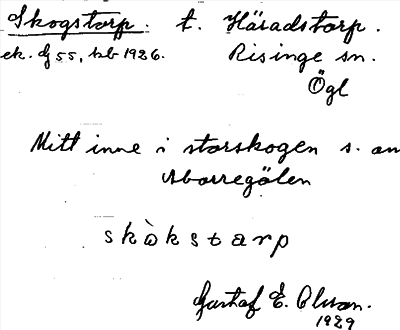 Skogstorp. t. Häradstorp.
ek. bf 55, hb 1926. Risinge sn.
Ögl
Mitt inne i storskogen s. om
Aborregölen
skòkstarp
Gustaf E. Olsson.
1929